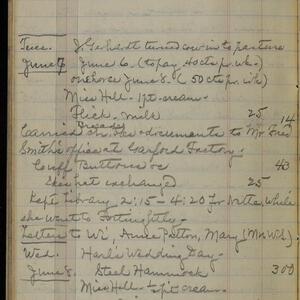 Tues. J. Gehardt turned cow in to pasture
June 7 June 6. (to pay 40 cts pr. wk.)
one horse June 8. (50 cts pr. wk)
Miss Hill - 1 pt. cream -
milk 25 14
Carried documents to Mr. Fred
Smith's office at Garford Factory.
Cuff Buttons 43
hat exchanged 25
Kept Library 2:15 - 4:20 for while
she went to Fortnightly -
Letters to Wi', Annie Patton, Mary (Mrs. W.)
Wed. Harl's Wedding Day -
June 8. Steel Hammock 300
Miss Hill - ½ pt cream